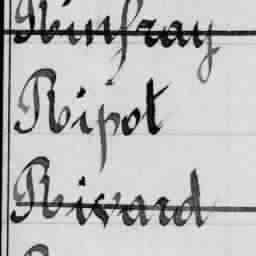 Rinfray
Ripot
Rivard